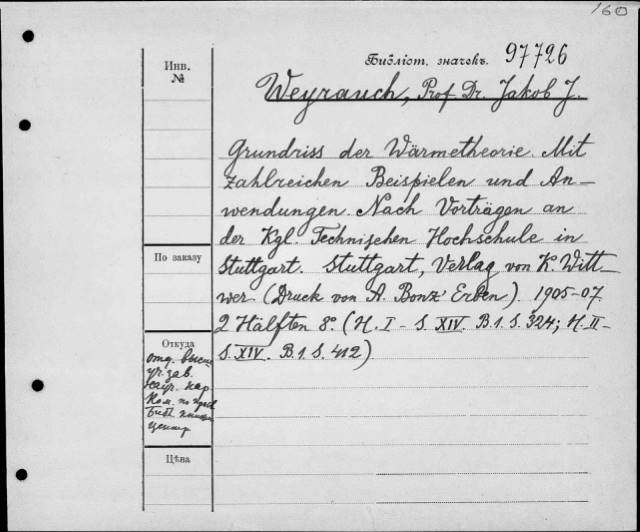 160
Библіот. значекъ. 97726
Инв.
№
Weyrauch, Prof. Dr. Jakob J.
Grundriss der Wärmetheorie. Mit
zahlreichen Beispielen und An-
wendungen. Nach Vorträgen an
der Kgl. Technischen Hochschule in
Stuttgart. Stuttgart, Verlag von K. Witt-
wer (Druck von A. Bonz' Erben). 1905-07.
2 Hälften 8°. (H. I - S. XIV. B.1. S. 324; H. II -
S. XIV. B.1. S. 412)
По заказу
Откуда
отд. высш.
уч. зав.
Ком. по
Цѣна